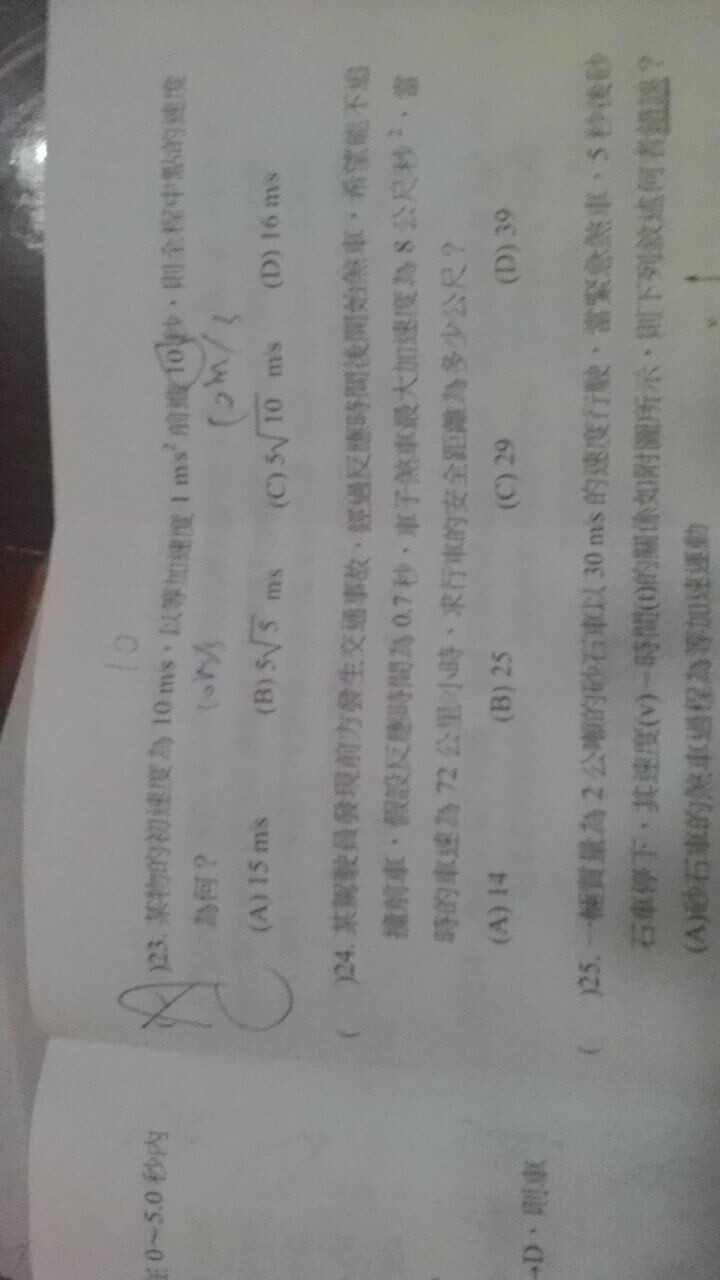 在 0～5.0 秒內
→D，則車
10
)23. 某物的初速度為 10 m/s，以等加速度 1 m/s² 前進 10 秒，則全程中點的速度
為何？
10m/s
(A) 15 m/s (B) 5√5 m/s (C) 5√10 m/s (D) 16 m/s
A
C
( )24. 某駕駛員發現前方發生交通事故，經過反應時間後開始煞車，希望能不追
撞前車，假設反應時間為 0.7 秒，車子煞車最大加速度為 8 公尺/秒²，當
時的車速為 72 公里/小時，求行車的安全距離為多少公尺？
(A) 14 (B) 25 (C) 29 (D) 39
( )25. 一輛質量為 2 公噸的砂石車以 30 m/s 的速度行駛，當緊急煞車，5 秒後砂
石車停下，其速度(v)－時間(t)的關係如附圖所示，則下列敘述何者錯誤？
(A)砂石車的煞車過程為等加速運動
v